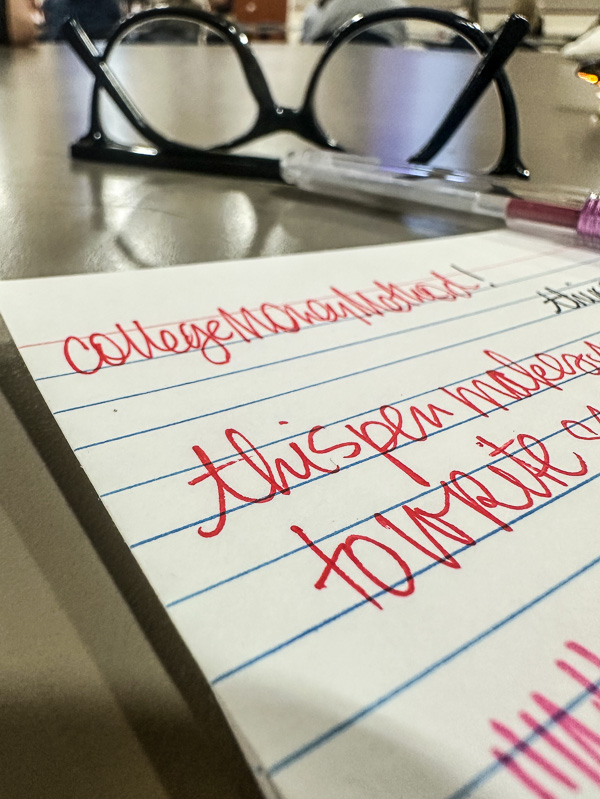 collegeMoneyMethod!
this
thispen makes
towrite